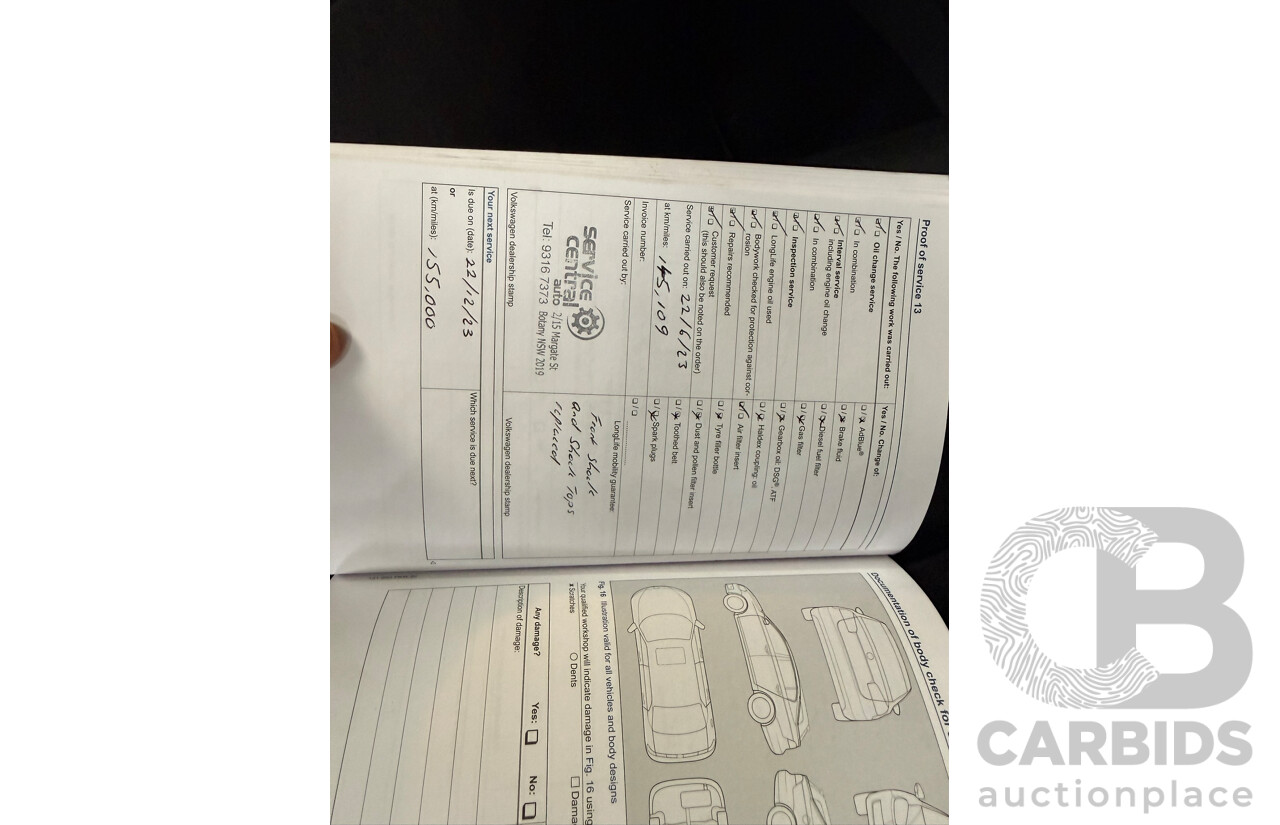 Proof of service 13
Yes / No. The following work was carried out:
Oil change service
In combination
Interval service
including engine oil change
In combination
Inspection service
LongLife engine oil used
Bodywork checked for protection against cor-
rosion
Repairs recommended
Customer request
(this should also be noted on the order)
Service carried out on: 22/6/23
at km/miles: 145,109
Invoice number:
Service carried out by:
service
central
auto
2/15 Margate St
Tel: 9316 7373 Botany NSW 2019
Volkswagen dealership stamp
Yes / No. Change of:
AdBlue®
Brake fluid
Diesel fuel filter
Gas filter
Gearbox oil: DSG®, ATF
Haldex coupling: oil
Air filter insert
Tyre filler bottle
Dust and pollen filter insert
Toothed belt
Spark plugs
LongLife mobility guarantee:
Front Shock
and Shock Tops
replaced
Volkswagen dealership stamp
Your next service
Is due on (date): 22/12/23
or
at (km/miles): 155,000
Which service is due next?
Documentation of body check for
Fig. 16 Illustration valid for all vehicles and body designs
Your qualified workshop will indicate damage in Fig. 16 using
x Scratches
O Dents
Any damage? Yes: No:
Description of damage:
CARBIDS
auctionplace